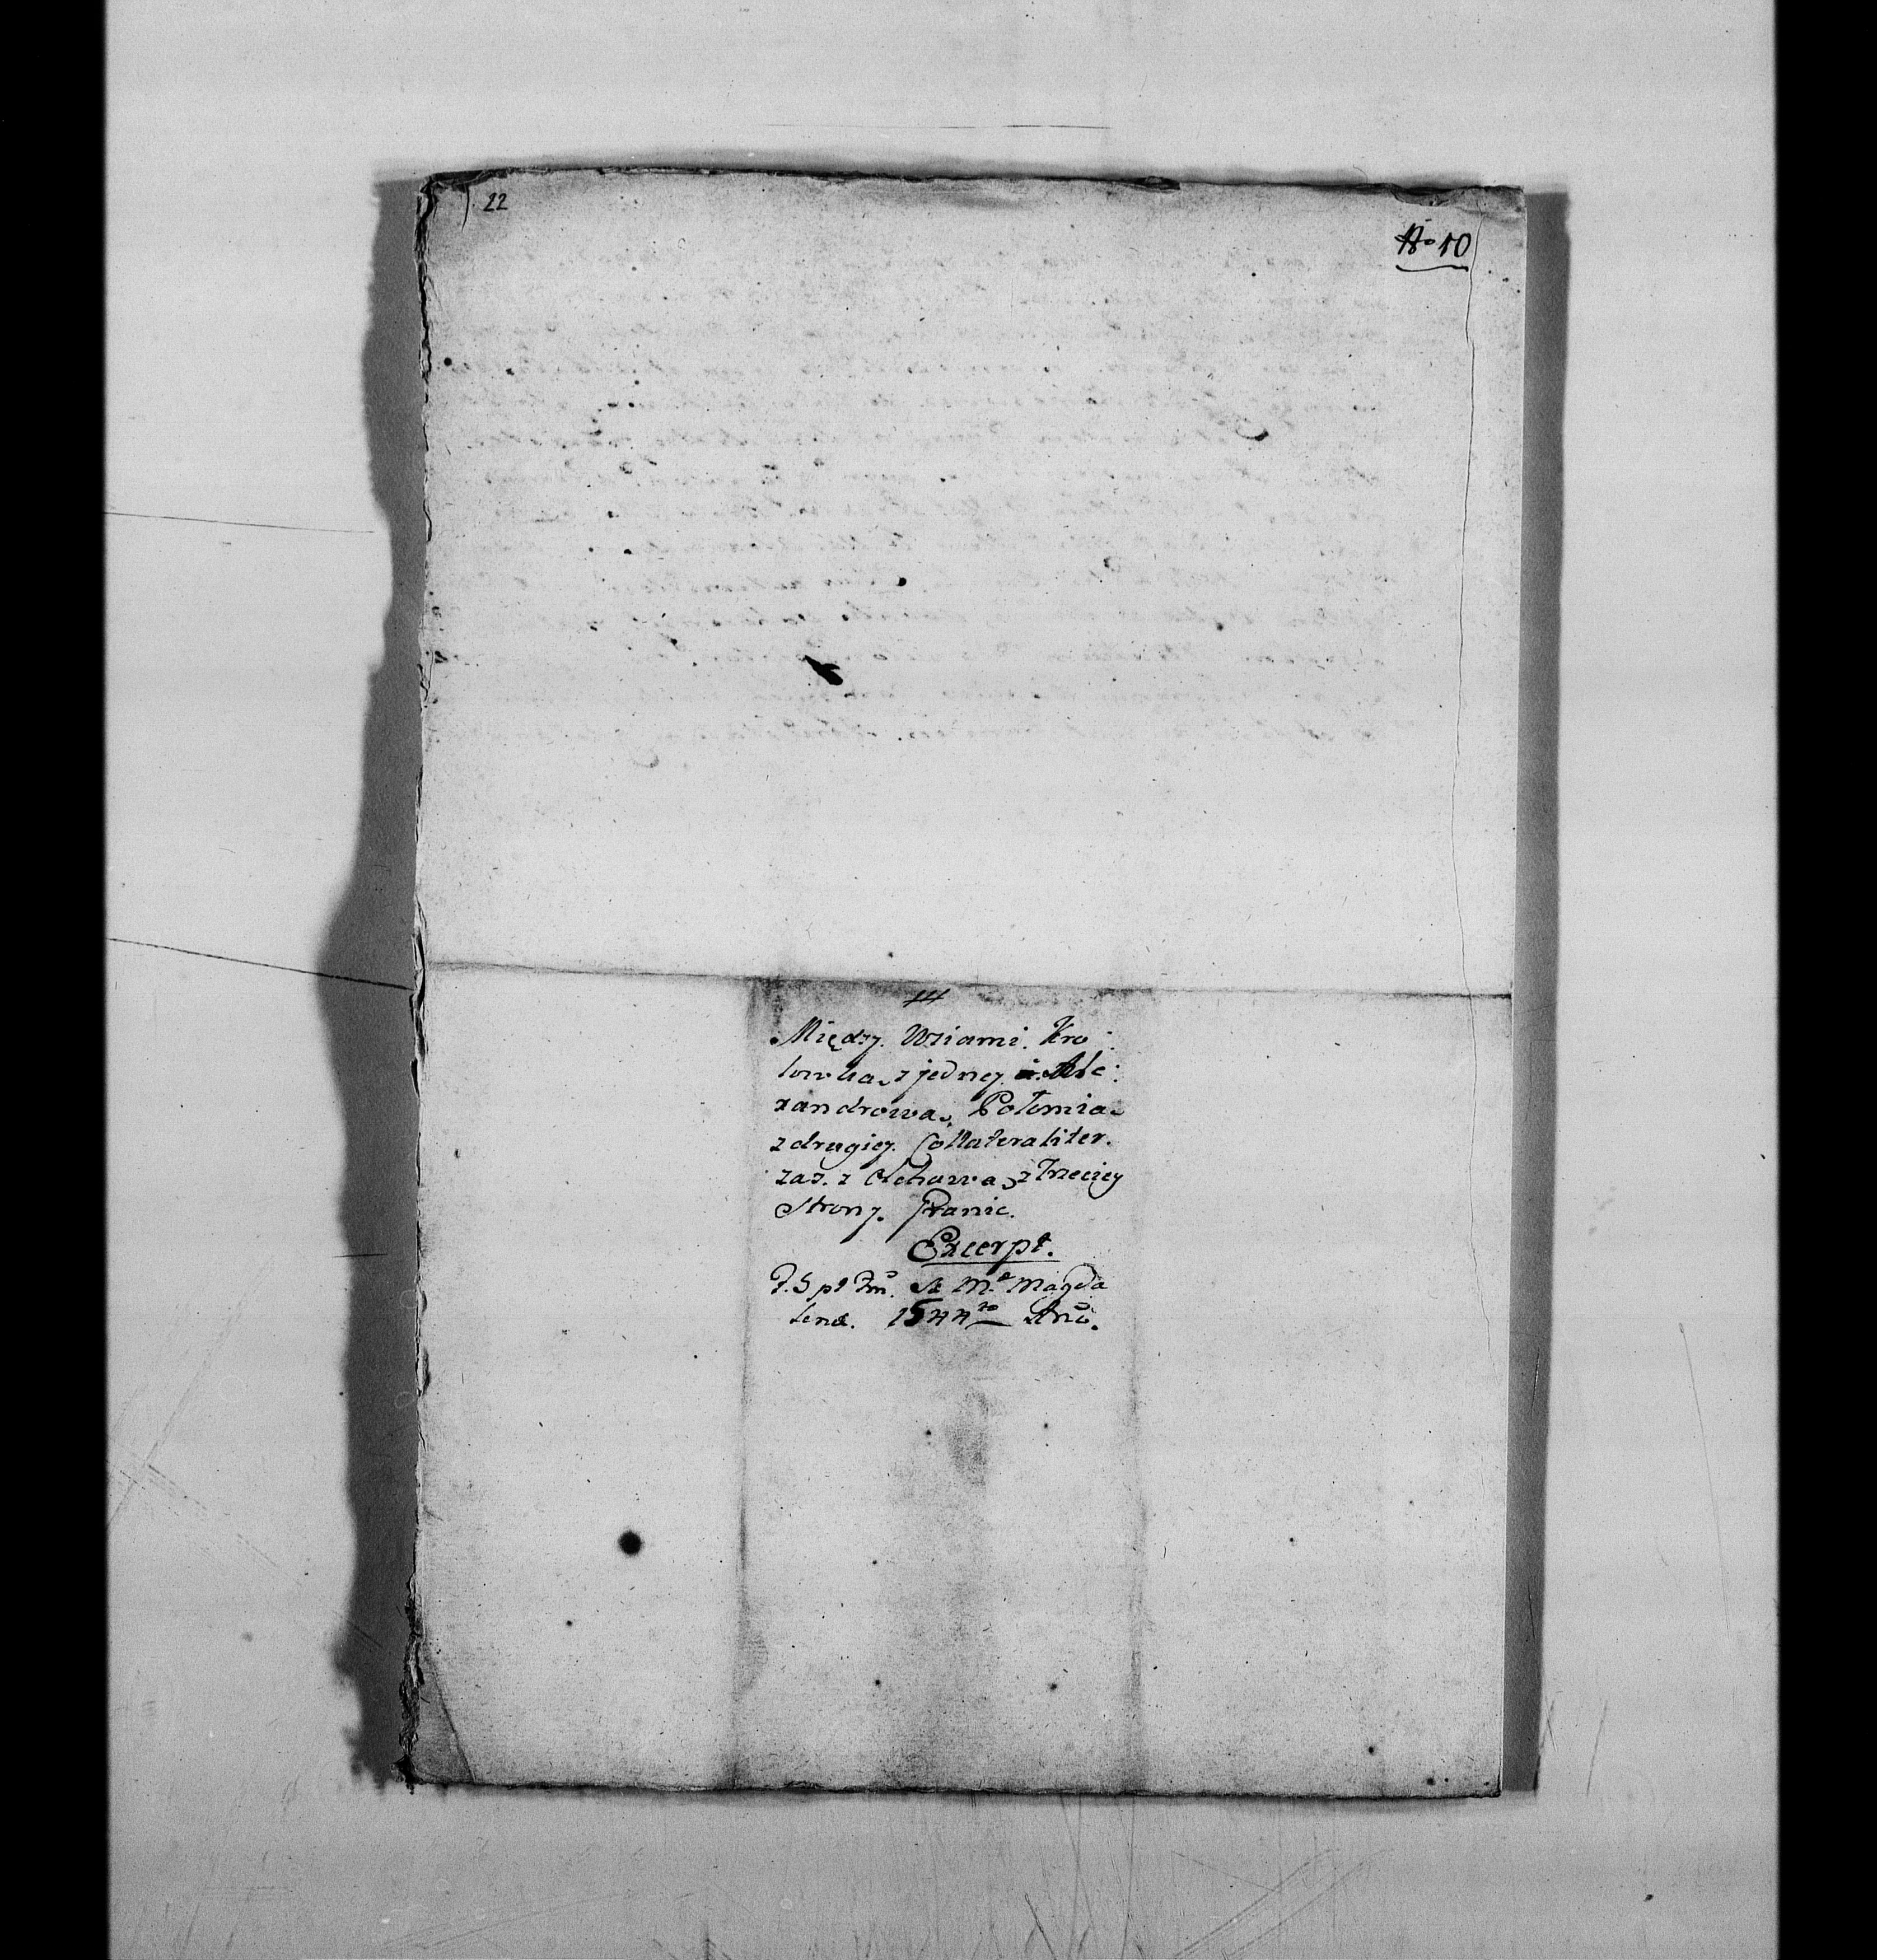 22
No 10
14
Między Wsiami Kro:
lowka z jedney i Ale:
xandrowa, Połomia
z drugiey Collateraliter
zas z Olchawa z Trzeciey
Strony Granic.
Excerpt.
F. 5 pt Fm. St. M.æ Magda
lenæ. 1544to Ano.